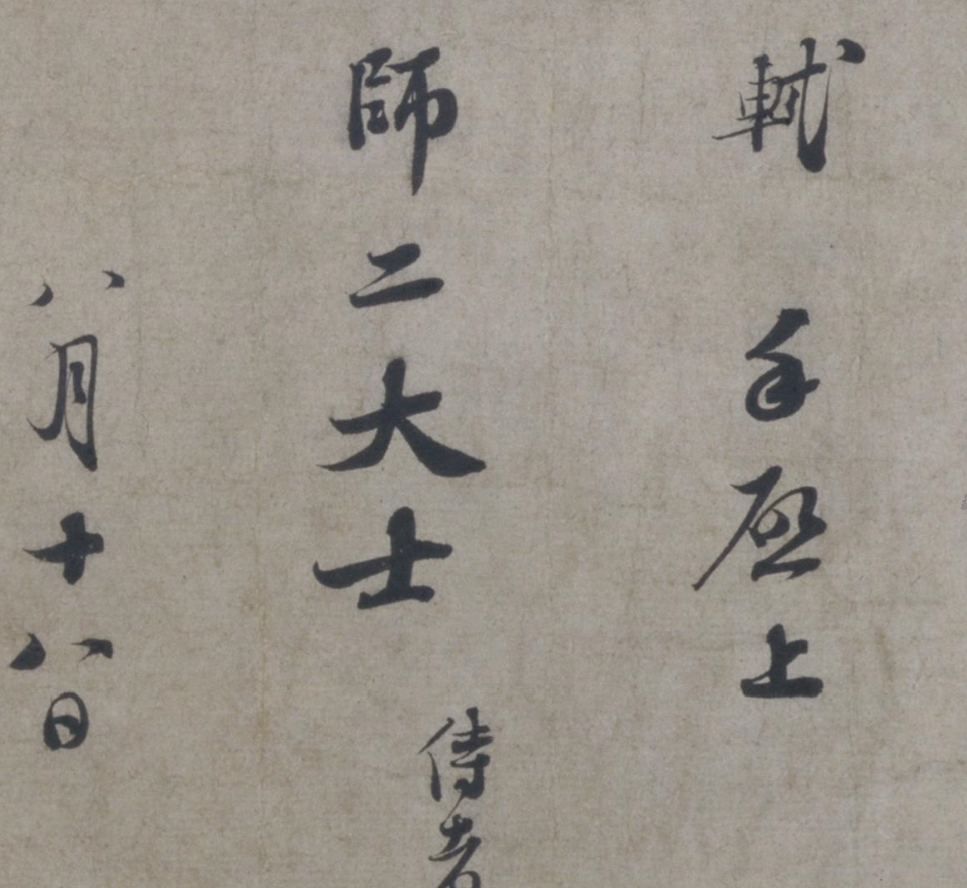 軾手啓上
師二大士侍者
八月十八日